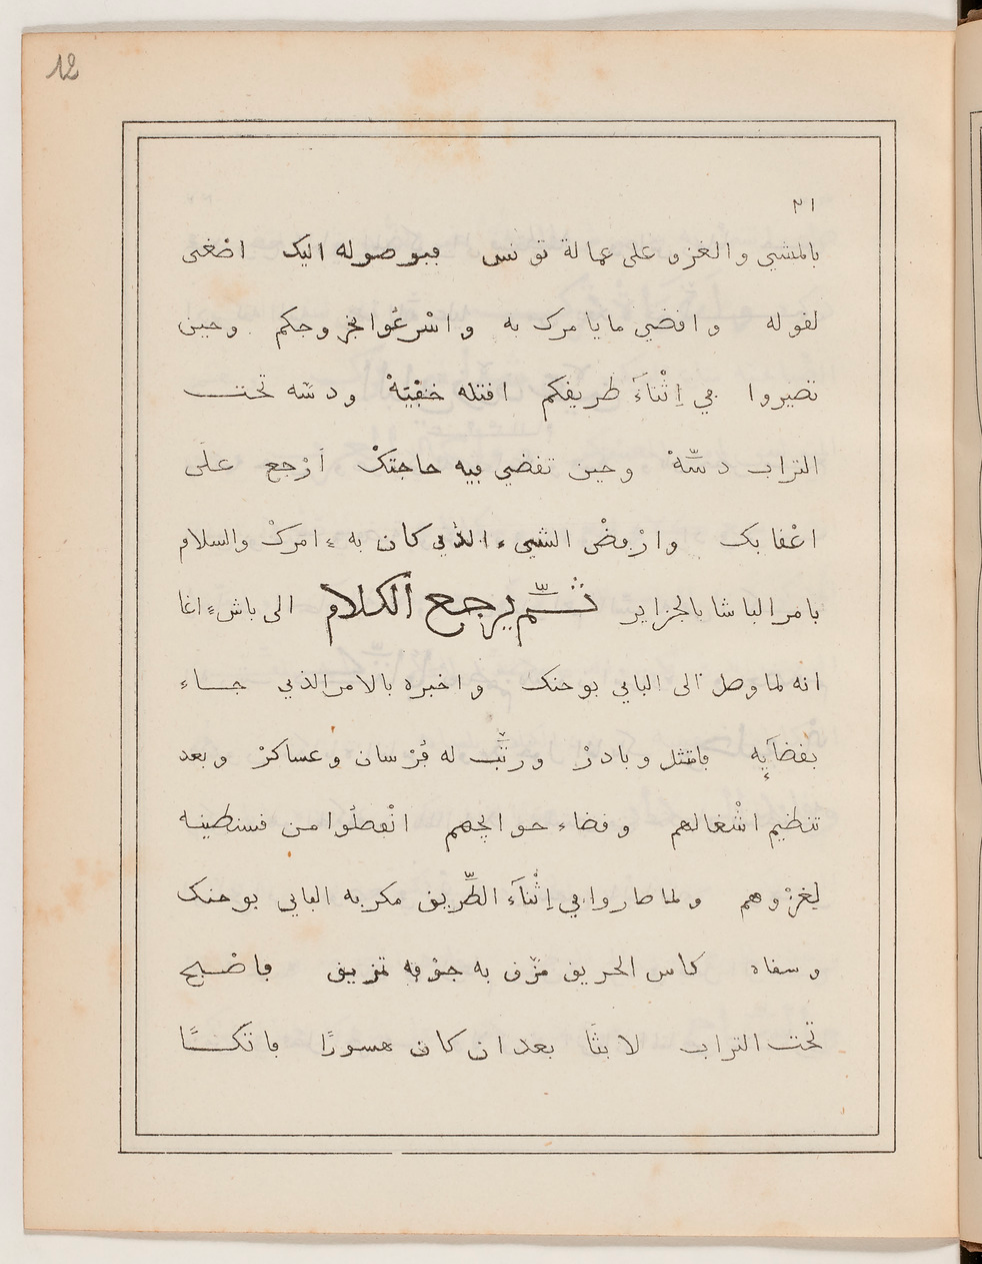 12
٢١
بالمشي والغزو على عمالة تونس فبوصوله اليك اصْغى
لقوله واقضي ما يامرك به واسْرعُوا بخروجكم وحين
تصيروا في اِثْنآءَ طريقكم اقتله خفْيَةْ ودسّه تحت
التراب دسّةْ وحين تقضي فيه حاجتكْ اَرْجع على
اعْقابك وارْفضْ الشيء الذي كان به ءامركْ والسلام
بامر الباشا بالجزاير ثمّ يرجع ألكلام الى باش ءاغا
انه لما وصل الى الباي بوحنك واخبره بالامر الذي جاء
بقضآيِه فامتثل وبادرْ ورتّب له فُرْسان وعساكرْ وبعد
تنظيم اشْغالهم وقضاء حوايجهم انْفصلُوا من قسنطينه
لِغزْوهم ولما صاروا في اِثْنآءَ الطّريق مكر به الباي بوحنك
وسقاه كاس الحريق مزّق به جوْفه تمزيق فاصْبح
تحت التراب لابثًا بعد ان كان جسورًا فاتكًا